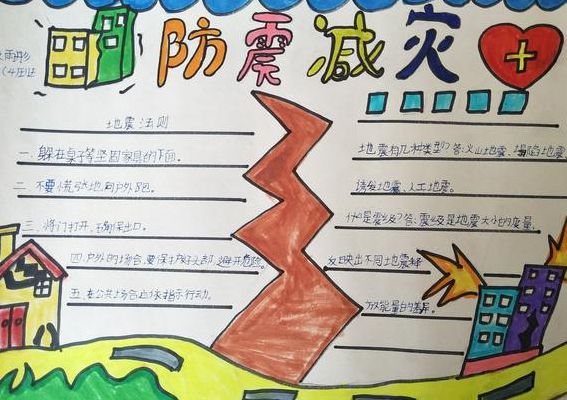 防震减灾
地震法则
一、躲在桌子等坚固家具的下面。
二、不要慌张地向户外跑。
三、将门打开,确保出口。
四、户外的场合,要保护好头部,避开危险。
五、在公共场合应依指示行动。
地震有几种类型?答:火山地震、塌陷地震、
诱发地震、人工地震。
什么是震级?答:震级是地震大小的度量,
反映出不同地震释
放能量的差异。